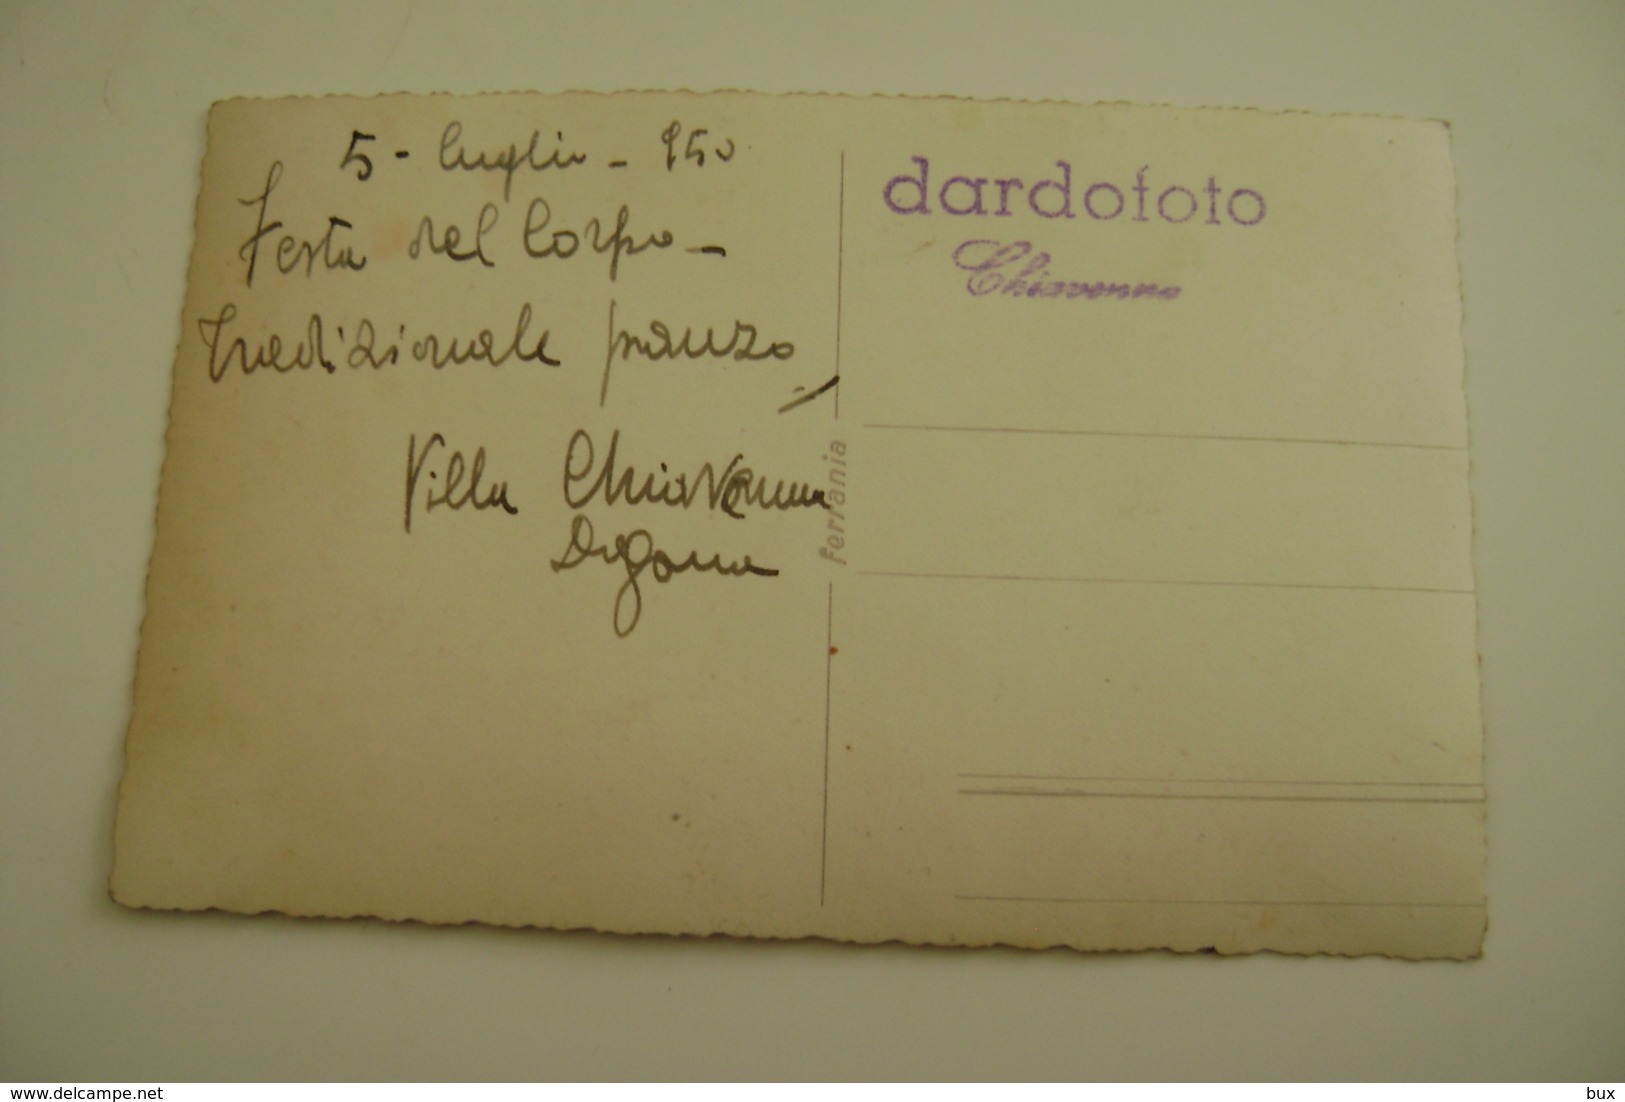 5 - luglio - 950
Festa del Corpo -
tradizionale pranzo
Villa Chiavenna
Dogana
dardofoto
Chiavenna
ferrania
delcampe.net
bux